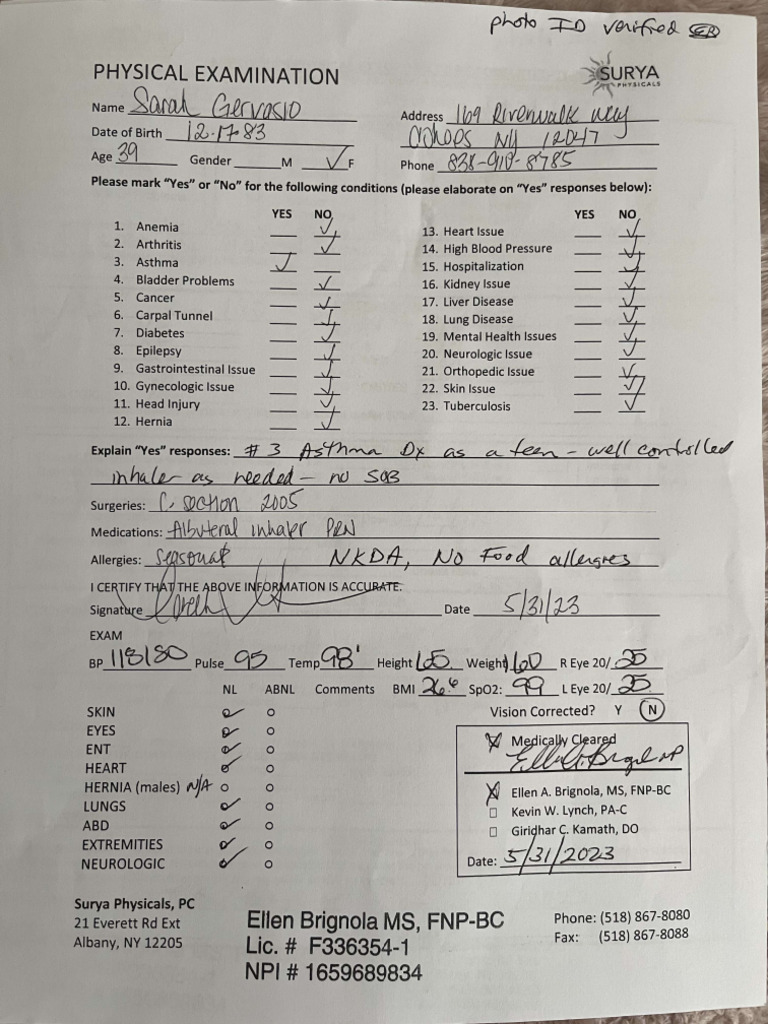 photo ID verified EB
PHYSICAL EXAMINATION
SURYA
PHYSICALS
Name Sarah Gervasio
Address 169 Riverwalk Way
Date of Birth 12-17-83
Cohoes NY 12047
Age 39 Gender M ✓ F
Phone 838-910-8785
Please mark "Yes" or "No" for the following conditions (please elaborate on "Yes" responses below):
YES NO YES NO
1. Anemia ✓ 13. Heart Issue ✓
2. Arthritis ✓ 14. High Blood Pressure ✓
3. Asthma ✓ 15. Hospitalization ✓
4. Bladder Problems ✓ 16. Kidney Issue ✓
5. Cancer ✓ 17. Liver Disease ✓
6. Carpal Tunnel ✓ 18. Lung Disease ✓
7. Diabetes ✓ 19. Mental Health Issues ✓
8. Epilepsy ✓ 20. Neurologic Issue ✓
9. Gastrointestinal Issue ✓ 21. Orthopedic Issue ✓
10. Gynecologic Issue ✓ 22. Skin Issue ✓
11. Head Injury ✓ 23. Tuberculosis ✓
12. Hernia ✓
Explain "Yes" responses: #3 Asthma Dx as a teen - well controlled
inhaler as needed - no SOB
Surgeries: C. section 2005
Medications: Albuteral inhaler PRN
Allergies: Seasonal NKDA, No Food allergies
I CERTIFY THAT THE ABOVE INFORMATION IS ACCURATE.
Signature Date 5/31/23
EXAM
BP 118/80 Pulse 95 Temp 98' Height 65 Weight 160 R Eye 20/ 25
NL ABNL Comments BMI 26.6 SpO2: 99 L Eye 20/ 25
SKIN ✓ Vision Corrected? Y N
EYES ✓
ENT ✓
HEART ✓
HERNIA (males) N/A
LUNGS ✓
ABD ✓
EXTREMITIES ✓
NEUROLOGIC ✓
X Medically Cleared
Ellen A. Brignola NP
X Ellen A. Brignola, MS, FNP-BC
Kevin W. Lynch, PA-C
Giridhar C. Kamath, DO
Date: 5/31/2023
Surya Physicals, PC
21 Everett Rd Ext
Albany, NY 12205
Ellen Brignola MS, FNP-BC
Lic. # F336354-1
NPI # 1659689834
Phone: (518) 867-8080
Fax: (518) 867-8088